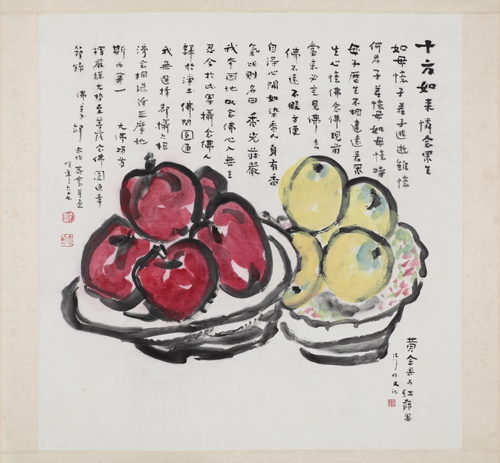 十方如來憐念眾生
如母憶子若子逃逝雖憶
何為子若憶母如母憶時
母子歷生不相違遠若眾
生心憶佛念佛現前
當來必定見佛去
佛不遠不假方便
自得心開如染香人身有香
氣此則名曰香光莊嚴
我本因地以念佛心入無生
忍今於此界攝念佛人
歸於淨土佛問圓通
我無選擇都攝六根
淨念相繼得三摩地
斯為第一 大佛頂首
楞嚴經大勢至菩薩念佛圓通章
節錄 佛弟子
黃金果与紅蘋果
又記